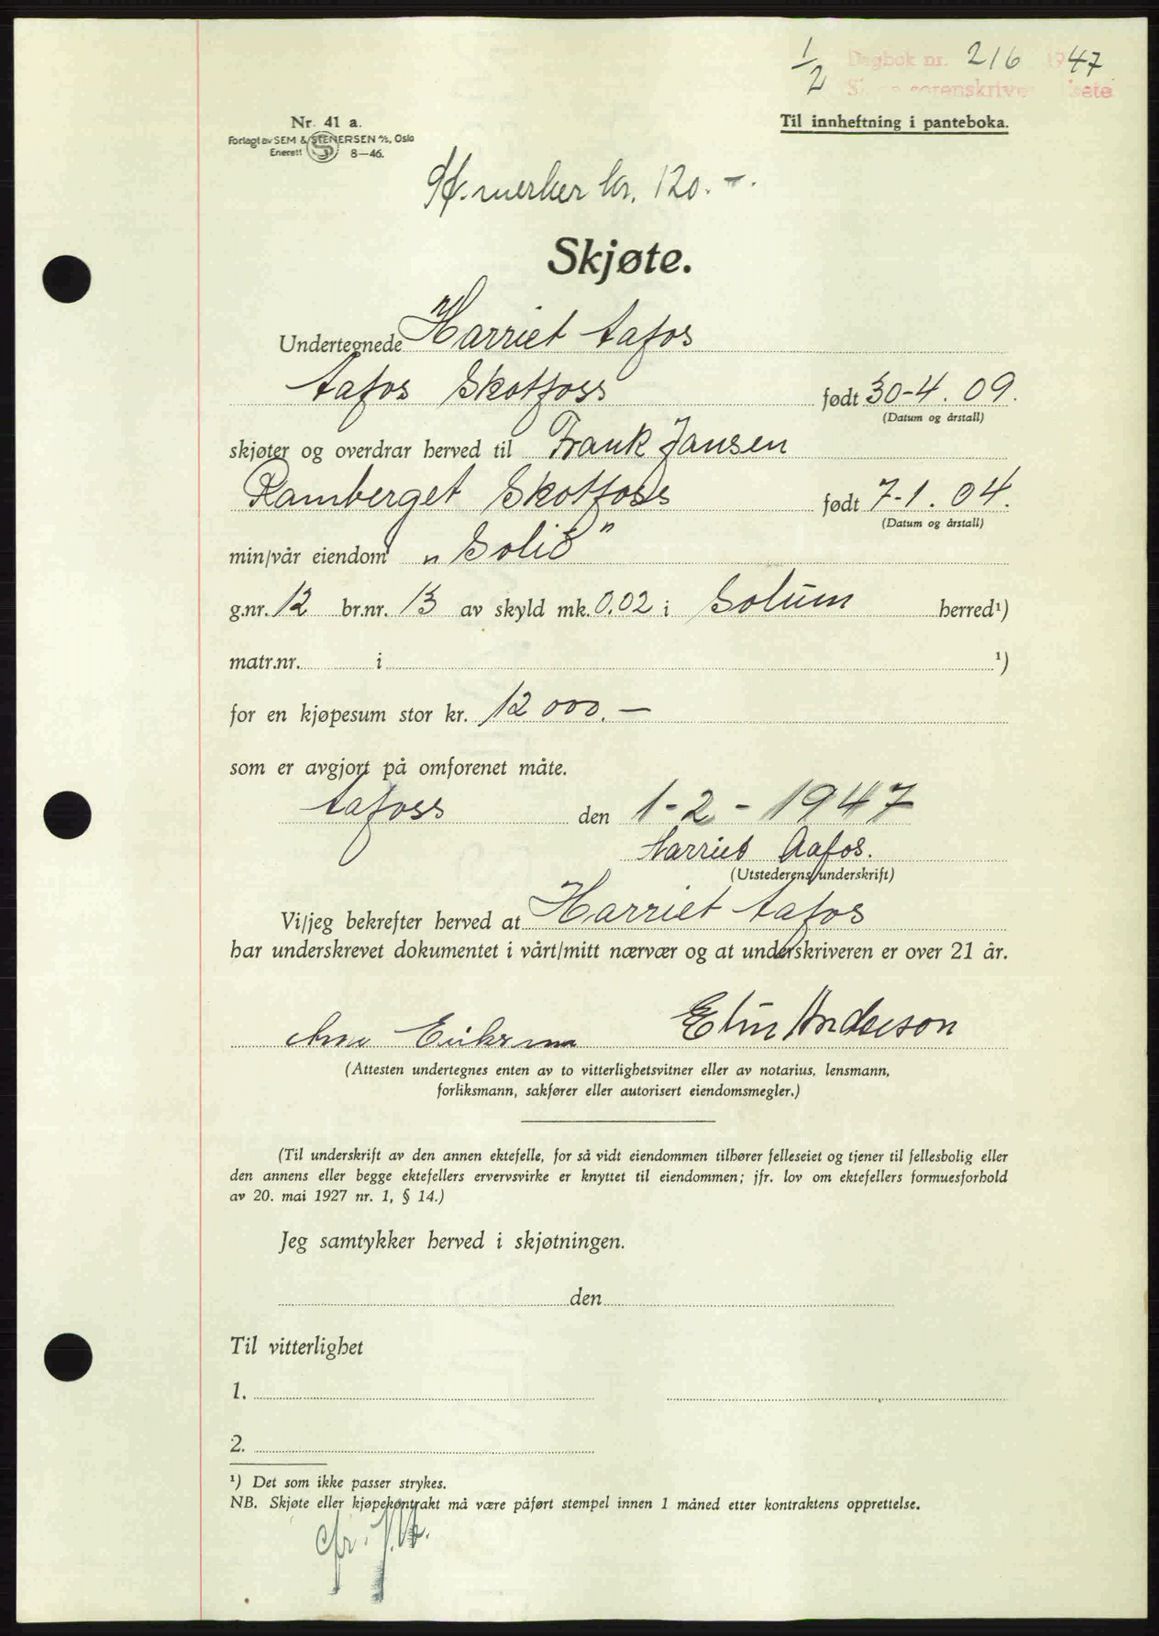 1/2 Dagbok nr. 216 1947
sorenskriver
Nr. 41 a.
Til innheftning i panteboka.
Forlagt av SEM & STENERSEN A/S, Oslo
Enerett 8—46.
St.merker kr. 120.-.
Skjøte.
Undertegnede Harriet Aafos
Aafos Skotfoss født 30-4.09.
(Datum og årstall)
skjøter og overdrar herved til Frank Jansen
Ramberget Skotfoss født 7-1.04.
(Datum og årstall)
min/vår eiendom „Solið"
g.nr. 12 br.nr. 13 av skyld mk. 0,02 i Solum herred¹)
matr.nr. i ¹)
for en kjøpesum stor kr. 12 000.—
som er avgjort på omforenet måte.
Aafoss den 1-2-1947
Harriet Aafos.
(Utstederens underskrift)
Vi/jeg bekrefter herved at Harriet Aafos
har underskrevet dokumentet i vårt/mitt nærvær og at underskriveren er over 21 år.
Elin Anderson
(Attesten undertegnes enten av to vitterlighetsvitner eller av notarius, lensmann,
forliksmann, sakfører eller autorisert eiendomsmegler.)
(Til underskrift av den annen ektefelle, for så vidt eiendommen tilhører felleseiet og tjener til fellesbolig eller
den annens eller begge ektefellers ervervsvirke er knyttet til eiendommen; jfr. lov om ektefellers formuesforhold
av 20. mai 1927 nr. 1, § 14.)
Jeg samtykker herved i skjøtningen.
den
Til vitterlighet
1.
2.
¹) Det som ikke passer strykes.
NB. Skjøte eller kjøpekontrakt må være påført stempel innen 1 måned etter kontraktens opprettelse.